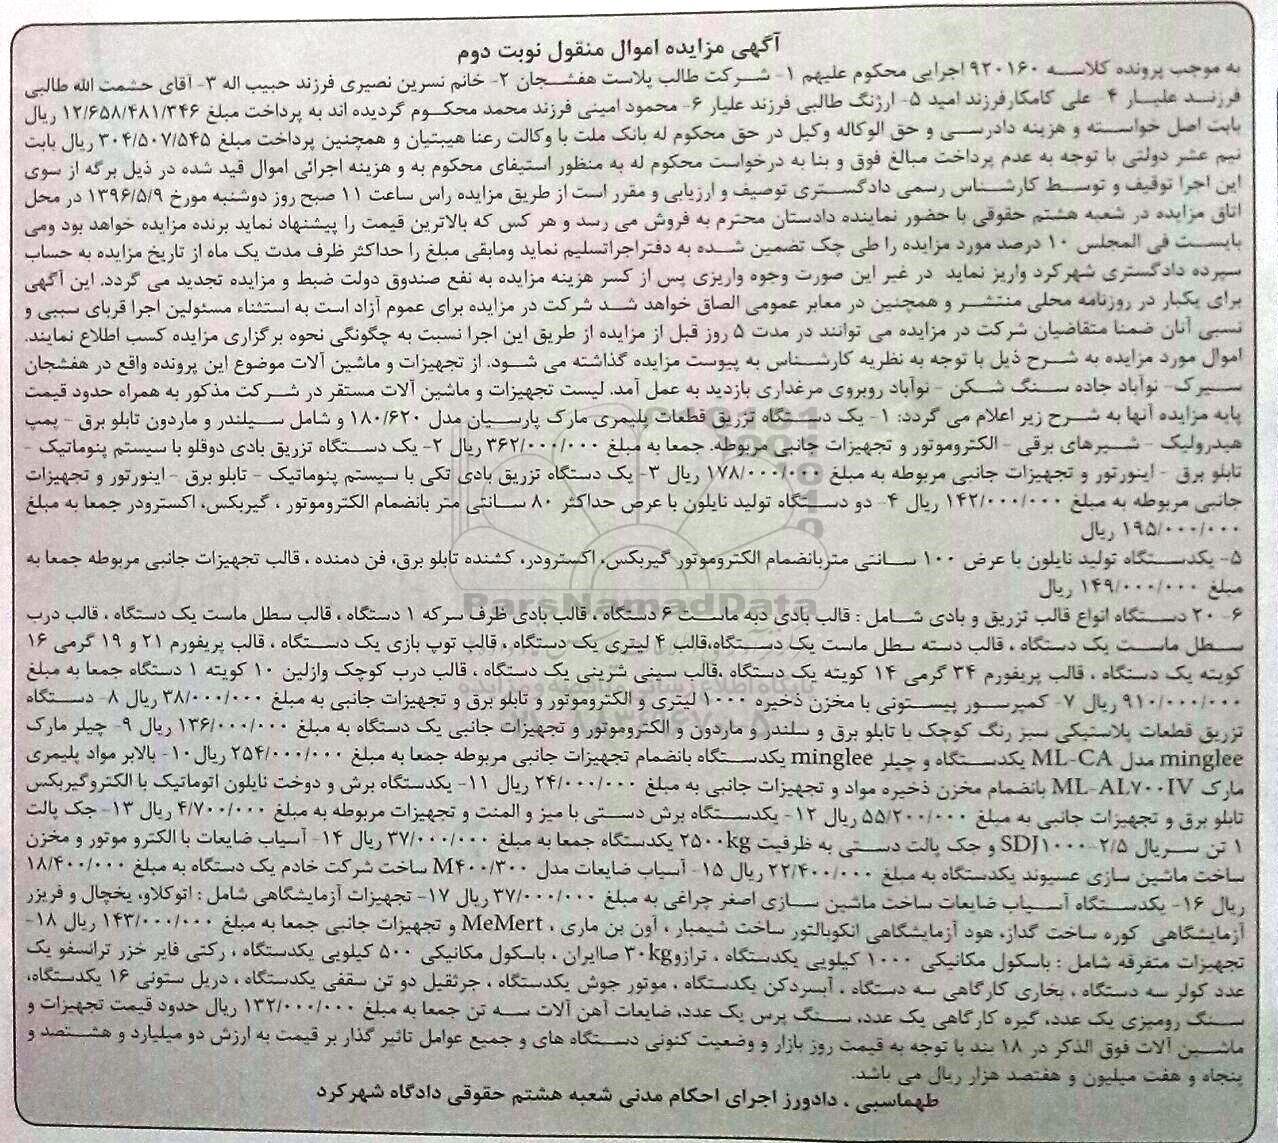 آگهی مزایده اموال منقول نوبت دوم
به موجب پرونده کلاسه ۹۲۰۱۶۰ اجرایی محکوم علیهم ۱- شرکت طالب پلاست هفشجان ۲- خانم نسرین نصیری فرزند حبیب اله ۳- آقای حشمت الله طالبی
فرزند علیار ۴- علی کامکارفرزند امید ۵- ارژنگ طالبی فرزند علیار ۶- محمود امینی فرزند محمد محکوم گردیده اند به پرداخت مبلغ ۱۲/۶۵۸/۴۸۱/۳۴۶ ریال
بابت اصل خواسته و هزینه دادرسی و حق الوکاله وکیل در حق محکوم له بانک ملت با وکالت رعنا هیبتیان و همچنین پرداخت مبلغ ۳۰۴/۵۰۷/۵۴۵ ریال بابت
نیم عشر دولتی با توجه به عدم پرداخت مبالغ فوق و بنا به درخواست محکوم له به منظور استیفای محکوم به و هزینه اجرائی اموال قید شده در ذیل برگه از سوی
این اجرا توقیف و توسط کارشناس رسمی دادگستری توصیف و ارزیابی و مقرر است از طریق مزایده راس ساعت ۱۱ صبح روز دوشنبه مورخ ۱۳۹۶/۵/۹ در محل
اتاق مزایده در شعبه هشتم حقوقی با حضور نماینده دادستان محترم به فروش می رسد و هر کس که بالاترین قیمت را پیشنهاد نماید برنده مزایده خواهد بود ومی
بایست فی المجلس ۱۰ درصد مورد مزایده را طی چک تضمین شده به دفتراجراتسلیم نماید ومابقی مبلغ را حداکثر ظرف مدت یک ماه از تاریخ مزایده به حساب
سپرده دادگستری شهرکرد واریز نماید در غیر این صورت وجوه واریزی پس از کسر هزینه مزایده به نفع صندوق دولت ضبط و مزایده تجدید می گردد. این آگهی
برای یکبار در روزنامه محلی منتشر و همچنین در معابر عمومی الصاق خواهد شد شرکت در مزایده برای عموم آزاد است به استثناء مسئولین اجرا قربای سببی و
نسبی آنان ضمنا متقاضیان شرکت در مزایده می توانند در مدت ۵ روز قبل از مزایده از طریق این اجرا نسبت به چگونگی نحوه برگزاری مزایده کسب اطلاع نمایند.
اموال مورد مزایده به شرح ذیل با توجه به نظریه کارشناس به پیوست مزایده گذاشته می شود. از تجهیزات و ماشین آلات موضوع این پرونده واقع در هفشجان
سیرک- نوآباد جاده سنگ شکن - نوآباد روبروی مرغداری بازدید به عمل آمد. لیست تجهیزات و ماشین آلات مستقر در شرکت مذکور به همراه حدود قیمت
پایه مزایده آنها به شرح زیر اعلام می گردد: ۱- یک دستگاه تزریق قطعات پلیمری مارک پارسیان مدل ۱۸۰/۶۲۰ و شامل سیلندر و ماردون تابلو برق - پمپ
هیدرولیک - شیرهای برقی - الکتروموتور و تجهیزات جانبی مربوطه. جمعا به مبلغ ۳۶۲/۰۰۰/۰۰۰ ریال ۲- یک دستگاه تزریق بادی دوقلو با سیستم پنوماتیک -
تابلو برق - اینورتور و تجهیزات جانبی مربوطه به مبلغ ۱۷۸/۰۰۰/۰۰۰ ریال ۳- یک دستگاه تزریق بادی تکی با سیستم پنوماتیک - تابلو برق - اینورتور و تجهیزات
جانبی مربوطه به مبلغ ۱۴۲/۰۰۰/۰۰۰ ریال ۴- دو دستگاه تولید نایلون با عرض حداکثر ۸۰ سانتی متر بانضمام الکتروموتور ، گیربکس، اکسترودر جمعا به مبلغ
۱۹۵/۰۰۰/۰۰۰ ریال
۵- یکدستگاه تولید نایلون با عرض ۱۰۰ سانتی متربانضمام الکتروموتور گیربکس، اکسترودر، کشنده تابلو برق، فن دمنده ، قالب تجهیزات جانبی مربوطه جمعا به
مبلغ ۱۴۹/۰۰۰/۰۰۰ ریال
ParsNamadData
۶- ۲۰ دستگاه انواع قالب تزریق و بادی شامل : قالب بادی دبه ماست ۶ دستگاه ، قالب بادی ظرف سرکه ۱ دستگاه ، قالب سطل ماست یک دستگاه ، قالب درب
سطل ماست یک دستگاه ، قالب دسته سطل ماست یک دستگاه،قالب ۴ لیتری یک دستگاه ، قالب توپ بازی یک دستگاه ، قالب پریفورم ۲۱ و ۱۹ گرمی ۱۶
کویته یک دستگاه ، قالب پریفورم ۳۴ گرمی ۱۴ کویته یک دستگاه ،قالب سینی شرینی یک دستگاه ، قالب درب کوچک وازلین ۱۰ کویته ۱ دستگاه جمعا به مبلغ
۹۱۰/۰۰۰/۰۰۰ ریال ۷- کمپرسور پیستونی با مخزن ذخیره ۱۰۰۰ لیتری و الکتروموتور و تابلو برق و تجهیزات جانبی به مبلغ ۳۸/۰۰۰/۰۰۰ ریال ۸- دستگاه
تزریق قطعات پلاستیکی سبز رنگ کوچک با تابلو برق و سلندر و ماردون و الکتروموتور و تجهیزات جانبی یک دستگاه به مبلغ ۱۳۶/۰۰۰/۰۰۰ ریال ۹- چیلر مارک
minglee مدل ML-CA یکدستگاه و چیلر minglee یکدستگاه بانضمام تجهیزات جانبی مربوطه جمعا به مبلغ ۲۵۴/۰۰۰/۰۰۰ ریال ۱۰- بالابر مواد پلیمری
مارک ML-AL۷۰۰IV بانضمام مخزن ذخیره مواد و تجهیزات جانبی به مبلغ ۲۴/۰۰۰/۰۰۰ ریال ۱۱- یکدستگاه برش و دوخت نایلون اتوماتیک با الکتروگیربکس
تابلو برق و تجهیزات جانبی به مبلغ ۵۵/۲۰۰/۰۰۰ ریال ۱۲- یکدستگاه برش دستی با میز و المنت و تجهیزات مربوطه به مبلغ ۴/۷۰۰/۰۰۰ ریال ۱۳- جک پالت
۱ تن سریال SDJ۱۰۰۰-۲/۵ و جک پالت دستی به ظرفیت ۲۵۰۰kg یکدستگاه جمعا به مبلغ ۳۷/۰۰۰/۰۰۰ ریال ۱۴- آسیاب ضایعات با الکترو موتور و مخزن
ساخت ماشین سازی عسیوند یکدستگاه به مبلغ ۲۲/۴۰۰/۰۰۰ ریال ۱۵- آسیاب ضایعات مدل M۴۰۰/۳۰۰ ساخت شرکت خادم یک دستگاه به مبلغ ۱۸/۴۰۰/۰۰۰
ریال ۱۶- یکدستگاه آسیاب ضایعات ساخت ماشین سازی اصغر چراغی به مبلغ ۳۷/۰۰۰/۰۰۰ ریال ۱۷- تجهیزات آزمایشگاهی شامل : اتوکلاو، یخچال و فریزر
آزمایشگاهی کوره ساخت گداز، هود آزمایشگاهی انکوبالتور ساخت شیمیار ، آون بن ماری ، MeMert و تجهیزات جانبی جمعا به مبلغ ۱۴۳/۰۰۰/۰۰۰ ریال ۱۸-
تجهیزات متفرقه شامل : باسکول مکانیکی ۱۰۰۰ کیلویی یکدستگاه ، ترازو۳۰kg صاایران ، باسکول مکانیکی ۵۰۰ کیلویی یکدستگاه ، رکتی فایر خزر ترانسفو یک
عدد کولر سه دستگاه ، بخاری کارگاهی سه دستگاه ، آبسردکن یکدستگاه ، موتور جوش یکدستگاه ، جرثقیل دو تن سقفی یکدستگاه ، دریل ستونی ۱۶ یکدستگاه،
سنگ رومیزی یک عدد، گیره کارگاهی یک عدد، سنگ پرس یک عدد، ضایعات آهن آلات سه تن جمعا به مبلغ ۱۳۲/۰۰۰/۰۰۰ ریال حدود قیمت تجهیزات و
ماشین آلات فوق الذکر در ۱۸ بند با توجه به قیمت روز بازار و وضعیت کنونی دستگاه های و جمیع عوامل تاثیر گذار بر قیمت به ارزش دو میلیارد و هشتصد و
پنجاه و هفت میلیون و هفتصد هزار ریال می باشد.
طهماسبی ، دادورز اجرای احکام مدنی شعبه هشتم حقوقی دادگاه شهرکرد